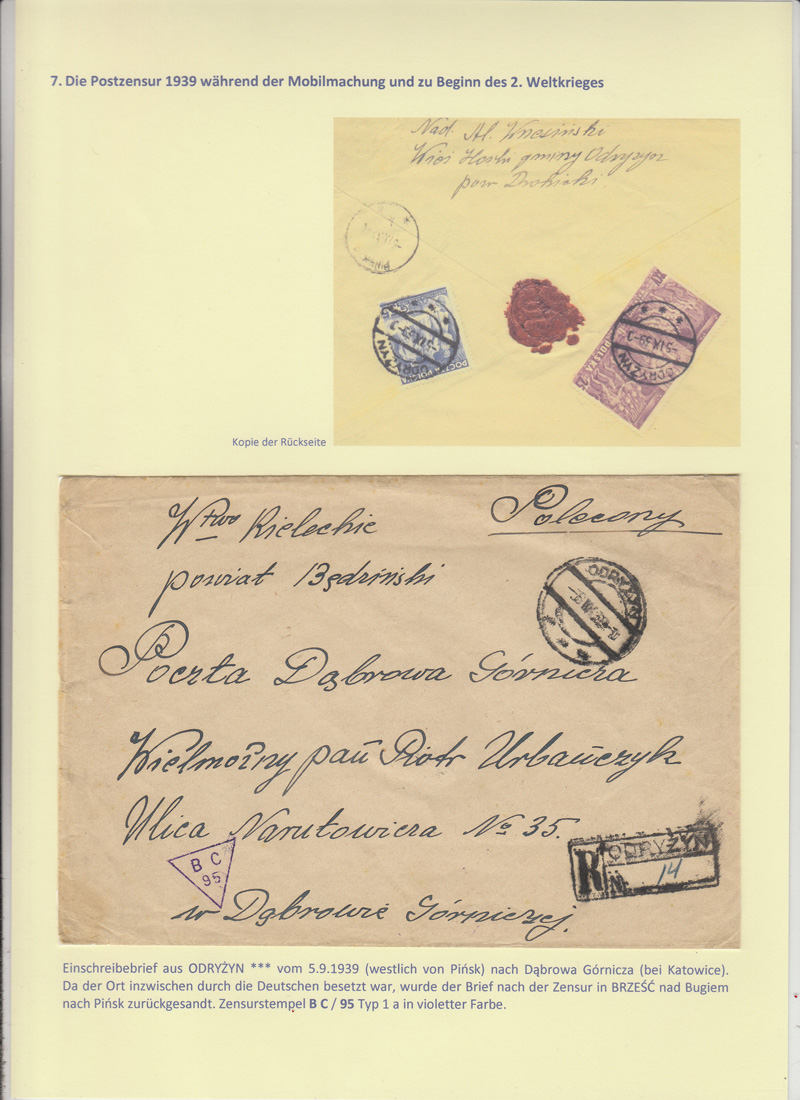 7. Die Postzensur 1939 während der Mobilmachung und zu Beginn des 2. Weltkrieges
Nad. Al.
Wieś gminy Odryżyn
pow. Drohicki.
PIŃSK
ODRYŻYN
-5.IX.39-
POCZTA POLSKA
ODRYŻYN
-5.IX.39-
Kopie der Rückseite
Wtwo Kieleckie
Polecony
powiat Będziński
ODRYŻYN
Poczta Dąbrowa Górnicza
Wielmożny pań Piotr Urbańczyk
Ulica Narutowicza No 35.
B C
95
R ODRYŻYN
№ 14
w Dąbrowie Górniczej.
Einschreibebrief aus ODRYŻYN *** vom 5.9.1939 (westlich von Pińsk) nach Dąbrowa Górnicza (bei Katowice).
Da der Ort inzwischen durch die Deutschen besetzt war, wurde der Brief nach der Zensur in BRZEŚĆ nad Bugiem
nach Pińsk zurückgesandt. Zensurstempel B C / 95 Typ 1 a in violetter Farbe.